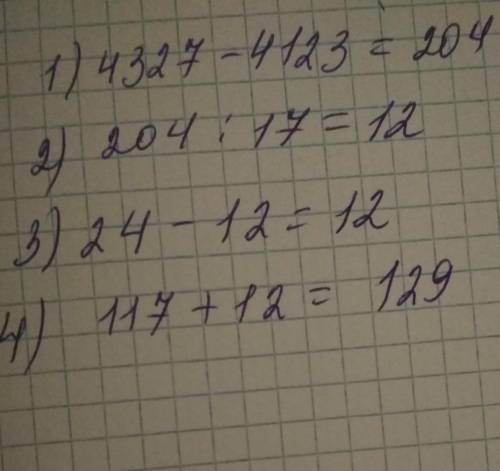 1) 4327 - 4123 = 204
2) 204 : 17 = 12
3) 24 - 12 = 12
4) 117 + 12 = 129